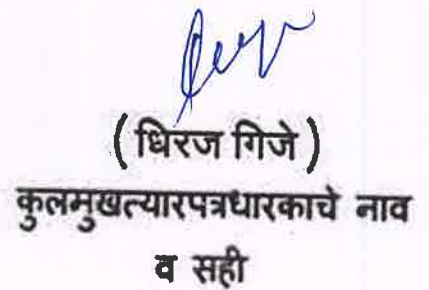 ( धिरज गिजे )
कुलमुखत्यारपत्रधारकाचे नाव
व सही